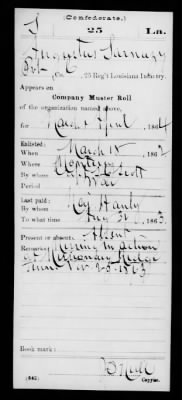 (Confederate.)
S 25 La.
Augustus
Pvt, Co. , 25 Reg't Louisiana Infantry.
Appears on
Company Muster Roll
of the organization named above,
for March & April, 1864
Enlisted:
When March 15, 1862
Where
By whom Scott
Period War
Last paid:
By whom Maj
To what time Aug 31, 1863.
Present or absent Absent
Remarks: Missing in action
at Missionary Ridge
Tenn Nov 25 1863
Book mark:
(642) Copyist.